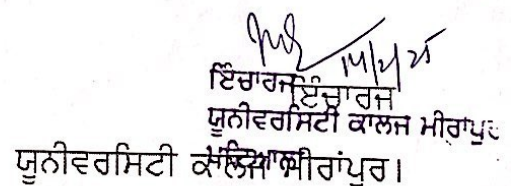 14/2/25
ਇੰਚਾਰਜ
ਇੰਚਾਰਜ
ਯੂਨੀਵਰਸਿਟੀ ਕਾਲਜ ਮੀਰਾਂਪੁਰ
ਯੂਨੀਵਰਸਿਟੀ ਕਾਲਜ ਮੀਰਾਂਪੁਰ।